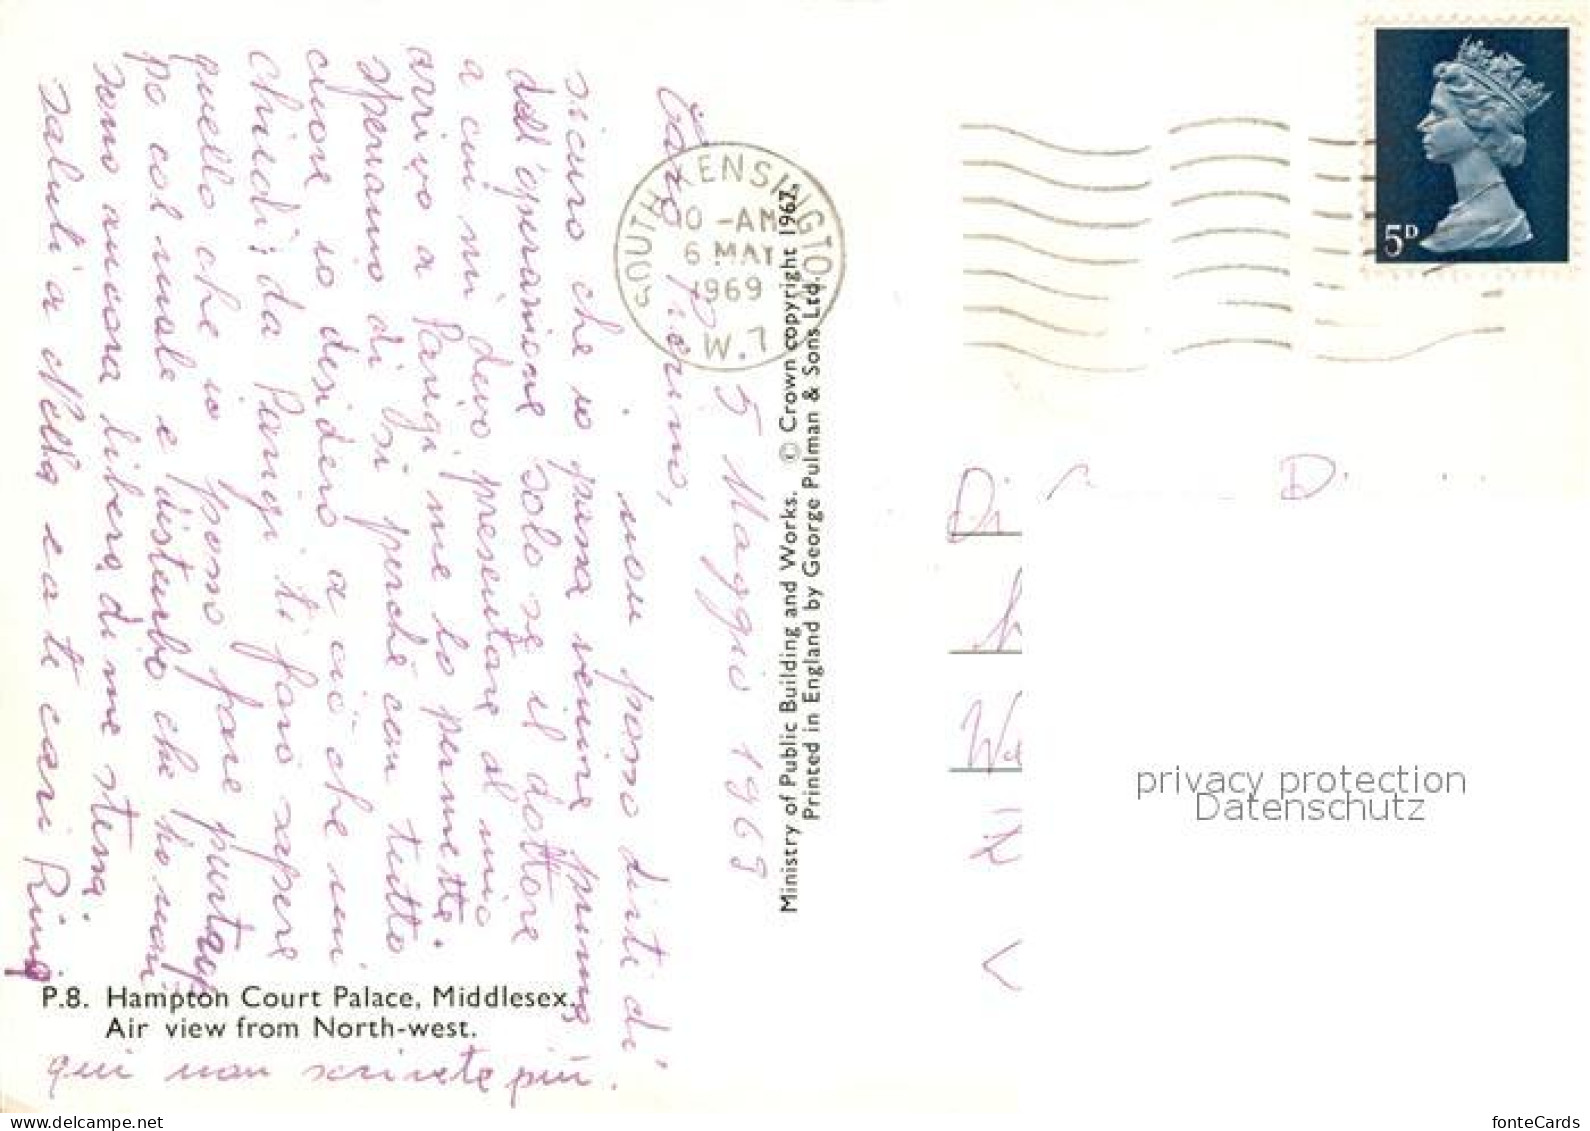 5 Maggio 1969
Caro
non posso dirti di
sicuro che io possa venire prima
dell'operazione solo se il dottore
a cui mi devo presentare al mio
arrivo a Parigi, me lo permette.
speriamo di si perché con tutto
cuore io desidero a ciò che mi
chiedi, da Parigi ti farò sapere
quello che io posso fare
po col male e disturbo che ho non
sono ancora libera di me stessa.
saluti a Nella e a te cari Rina
qui non scrivete più.
P.8. Hampton Court Palace, Middlesex.
Air view from North-west.
Ministry of Public Building and Works. © Crown copyright 1967.
Printed in England by George Pulman & Sons Ltd.
SOUTH KENSINGTON
10 -AM
6 MAY
1969
W.7
5D
Di
D
privacy protection
Datenschutz
www.delcampe.net
fonteCards